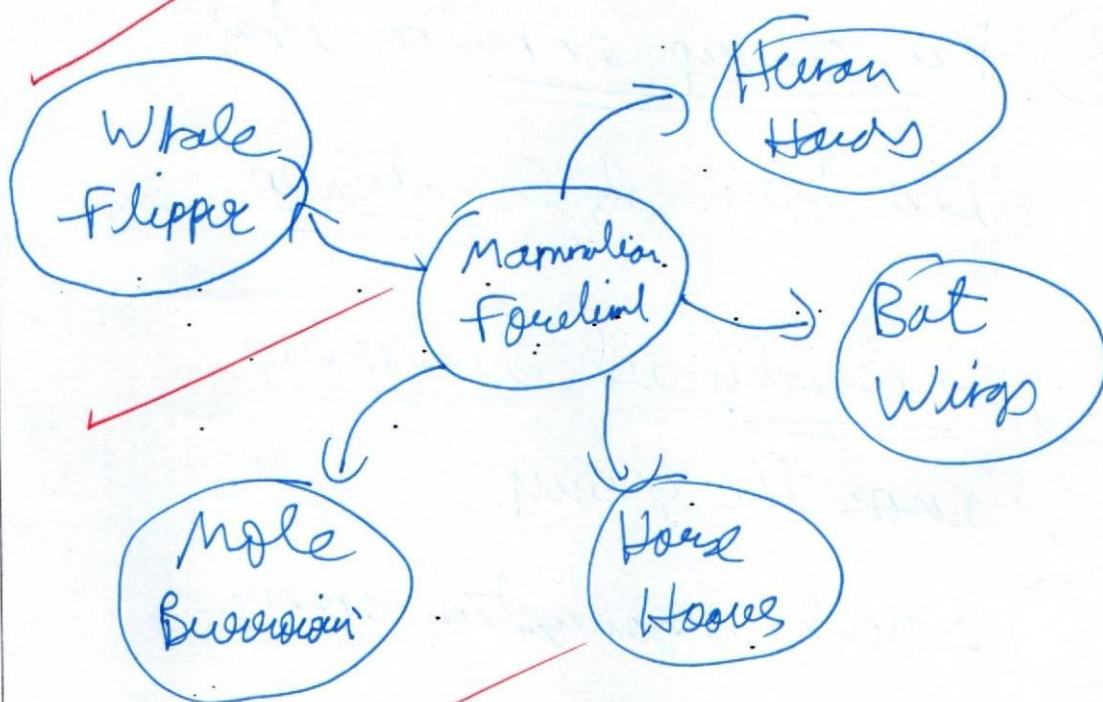 Whale
Flipper
Human
Hands
Mammalian
Forelimb
Bat
Wings
Mole
Burrowing
Horse
Hooves